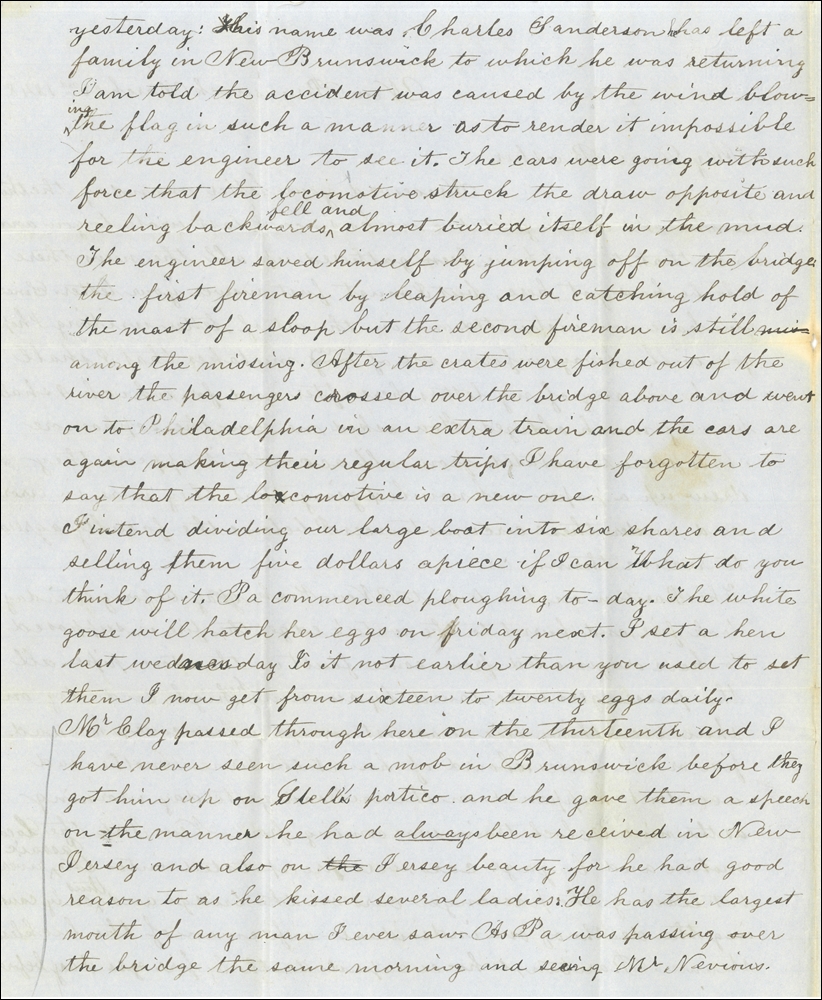 yesterday: his name was Charles Sanderson has left a
family in New-Brunswick to which he was returning
I am told the accident was caused by the wind blow=
ing
the flag in such a manner as to render it impossible
for the engineer to see it. The cars were going with such
force that the locomotive struck the draw opposite and
fell and
reeling backwards, almost buried itself in the mud.
The engineer saved himself by jumping off on the bridge
the first fireman by leaping and catching hold of
the mast of a sloop but the second fireman is still mis=
among the missing. After the crates were fished out of the
river the passengers crossed over the bridge above and went
on to Philadelphia in an extra train and the cars are
again making their regular trips, I have forgotten to
say that the locomotive is a new one.
I intend dividing our large boat into six shares and
selling them five dollars apiece if I can What do you
think of it. Pa commenced ploughing to-day. The white
goose will hatch her eggs on friday next. I set a hen
last wednesday Is it not earlier than you used to set
them I now get from sixteen to twenty eggs daily.
Mr Clay passed through here on the thirteenth and I
have never seen such a mob in Brunswick before they
got him up on Stell's portico and he gave them a speech
on the manner he had always been received in New
Jersey and also on the Jersey beauty for he had good
reason to as he kissed several ladies. He has the largest
mouth of any man I ever saw. As Pa was passing over
the bridge the same morning and seeing Mr Nevious.